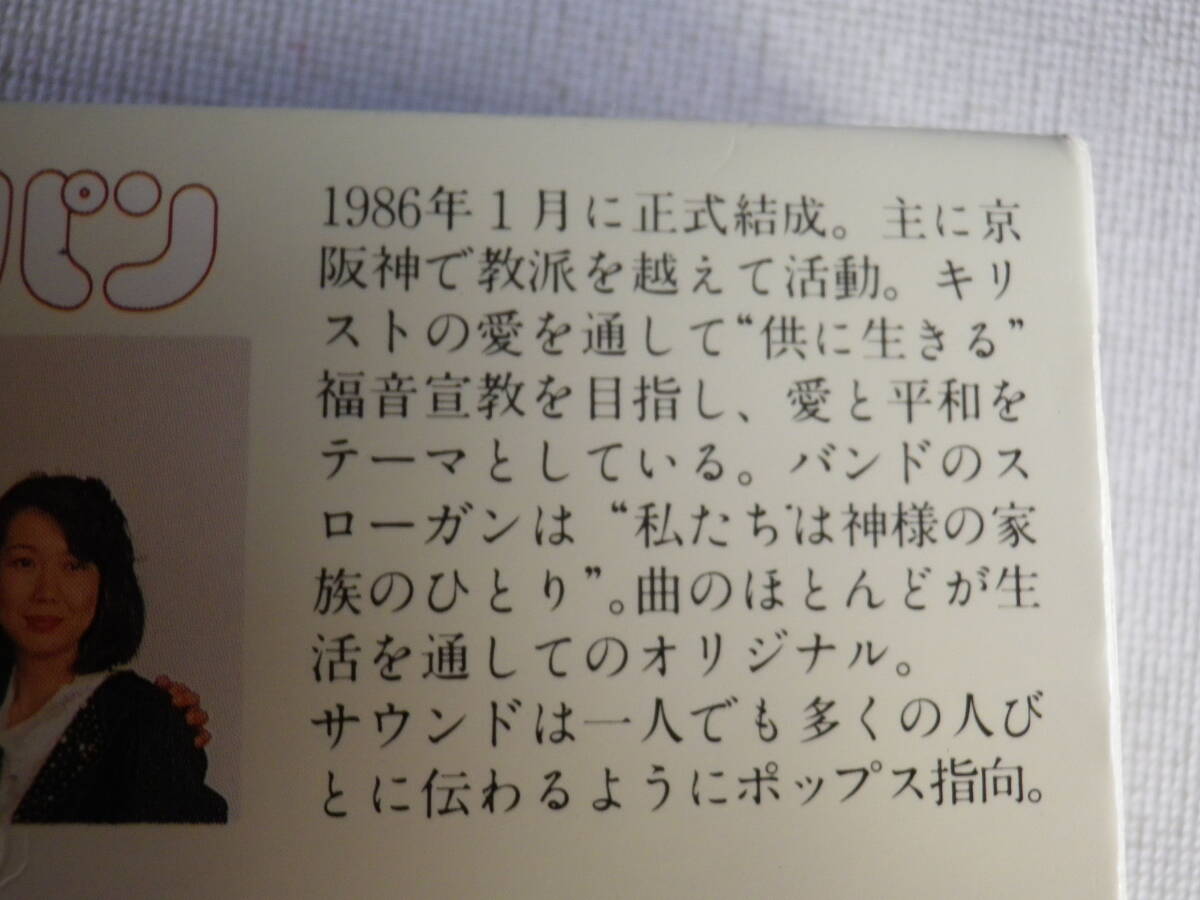 パン
1986年1月に正式結成。主に京
阪神で教派を越えて活動。キリ
ストの愛を通して“供に生きる”
福音宣教を目指し、愛と平和を
テーマとしている。バンドのス
ローガンは“私たちは神様の家
族のひとり”。曲のほとんどが生
活を通してのオリジナル。
サウンドは一人でも多くの人び
とに伝わるようにポップス指向。